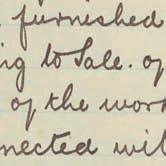 furnished
ing to Sale. of
of the wor
nected wil